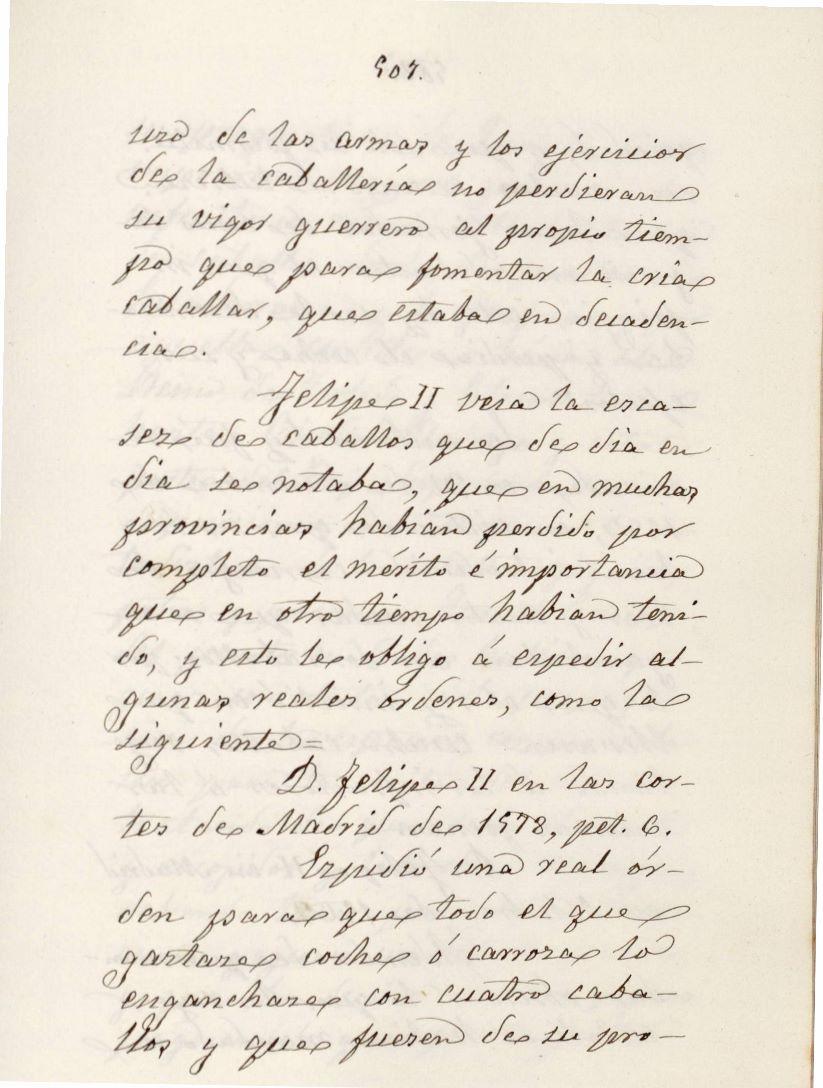 507.
uso de las armas y los ejercicios
de la caballería no perdieran
su vigor guerrero al propio tiem-
po que para fomentar la cria
caballar, que estaba en decaden-
cia.
Felipe II veia la esca-
sez de caballos que de dia en
dia se notaba, que en muchas
provincias habian perdido por
completo el mérito é importancia
que en otro tiempo habian teni-
do, y esto le obligo á espedir al-
gunas reales órdenes, como la
siguiente=
D. Felipe II en las cor-
tes de Madrid de 1578, pet. 6.
Espidió una real ór-
den para que todo el que
gastare coche ó carroza lo
enganchare con cuatro caba-
llos y que fuesen de su pro-